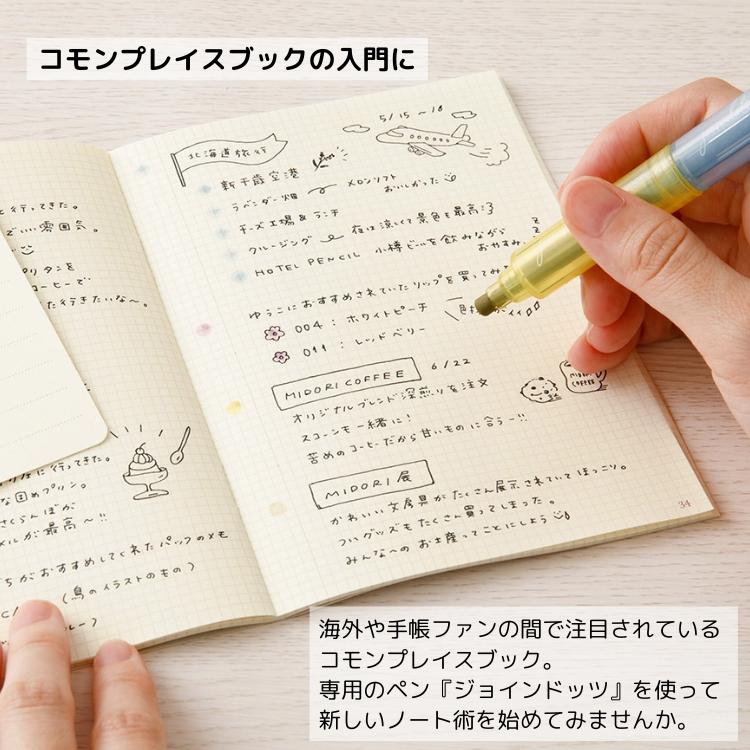 コモンプレイスブックの入門に
と行ってきた。
でいい雰囲気。
プリタンを
コーヒーで
た行きたいな〜。
に行ってきた。
な固めプリン。
さくらんぼが
メルが最高〜!!
ちがおすすめしてくれたパックのメモ
(鳥のイラストのもの)
5/15~18
北海道旅行
新千歳空港
ラベンダー畑 メロンソフト
おいしかった
チーズ工場&ランチ
クルージング 夜は涼しくて景色も最高
HOTEL PENCIL 小樽ビールを飲みながら
おやすみ
z
z
ゆうこにおすすめされていたリップを買ってみ
004:ホワイトピーチ
011:レッドベリー
MIDORI COFFEE 6/22
オリジナルブレンド深煎りを注文
スコーンも一緒に!
苦めのコーヒーだから甘いものに合う〜!!
MIDORI
COFFEE
MIDORI展
かわいい文房具がたくさん展示されていてほっこり。
ついグッズもたくさん買ってしまった。
みんなへのお土産ってことにしよう
34
海外や手帳ファンの間で注目されている
コモンプレイスブック。
専用のペン『ジョインドッツ』を使って
新しいノート術を始めてみませんか。